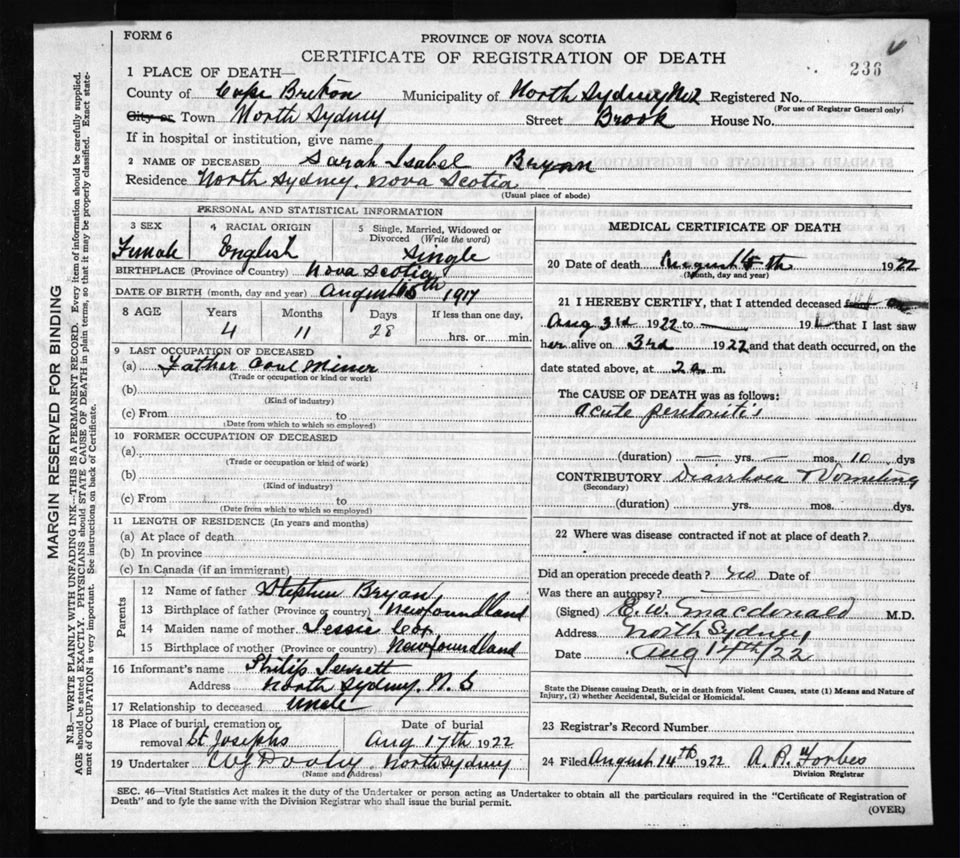 FORM 6
PROVINCE OF NOVA SCOTIA
CERTIFICATE OF REGISTRATION OF DEATH
236
1 PLACE OF DEATH—
County of Cape Breton Municipality of North Sydney No 2 Registered No.
(For use of Registrar General only)
City or Town North Sydney Street Brook House No.
If in hospital or institution, give name
2 NAME OF DECEASED Sarah Isabel Bryan
Residence North Sydney. Nova Scotia
(Usual place of abode)
PERSONAL AND STATISTICAL INFORMATION
3 SEX 4 RACIAL ORIGIN 5 Single, Married, Widowed or Divorced (Write the word)
Female English Single
BIRTHPLACE (Province or Country) Nova Scotia
DATE OF BIRTH (month, day and year) August 1917
8 AGE Years Months Days If less than one day,
4 11 28 hrs. or min.
9 LAST OCCUPATION OF DECEASED
(a) Father Coal Miner
(Trade or occupation or kind or work)
(b)
(Kind of industry)
(c) From to
(Date from which to which so employed)
10 FORMER OCCUPATION OF DECEASED
(a)
(Trade or occupation or kind of work)
(b)
(Kind of industry)
(c) From to
(Date from which to which so employed)
11 LENGTH OF RESIDENCE (In years and months)
(a) At place of death
(b) In province
(c) In Canada (if an immigrant)
Parents
12 Name of father Stephen Bryan
13 Birthplace of father (Province or country) Newfoundland
14 Maiden name of mother Jessie
15 Birthplace of mother (Province or country) Newfoundland
16 Informant's name Philip
Address North Sydney. N. S
17 Relationship to deceased Uncle
18 Place of burial, cremation or removal St Josephs Date of burial Aug 17th 1922
19 Undertaker Dooley North Sydney
(Name and Address)
MEDICAL CERTIFICATE OF DEATH
20 Date of death August th 1922
(Month, day and year)
21 I HEREBY CERTIFY, that I attended deceased from on
Aug 3rd 1922 to — 19 that I last saw
her alive on 3rd 1922 and that death occurred, on the
date stated above, at 2 a. m.
The CAUSE OF DEATH was as follows:
acute peritonitis
(duration) — yrs. — mos. 10 dys
CONTRIBUTORY Diarrhoea & Vomiting
(Secondary)
(duration) yrs. mos. dys.
22 Where was disease contracted if not at place of death?
Did an operation precede death? no Date of
Was there an autopsy? —
(Signed) E. W. Macdonald M.D.
Address North Sydney
Date Aug 14th/22
State the Disease causing Death, or in death from Violent Causes, state (1) Means and Nature of
Injury, (2) whether Accidental, Suicidal or Homicidal.
23 Registrar's Record Number
24 Filed August 14th 1922 A. R. Forbes
Division Registrar
SEC. 46—Vital Statistics Act makes it the duty of the Undertaker or person acting as Undertaker to obtain all the particulars required in the "Certificate of Registration of
Death" and to fyle the same with the Division Registrar who shall issue the burial permit.
(OVER)
MARGIN RESERVED FOR BINDING
N.B.—WRITE PLAINLY WITH UNFADING INK—THIS IS A PERMANENT RECORD. Every item of information should be carefully supplied.
AGE should be stated EXACTLY. PHYSICIANS should STATE CAUSE OF DEATH in plain terms, so that it may be properly classified. Exact state-
ment of OCCUPATION is very important. See instructions on back of Certificate.